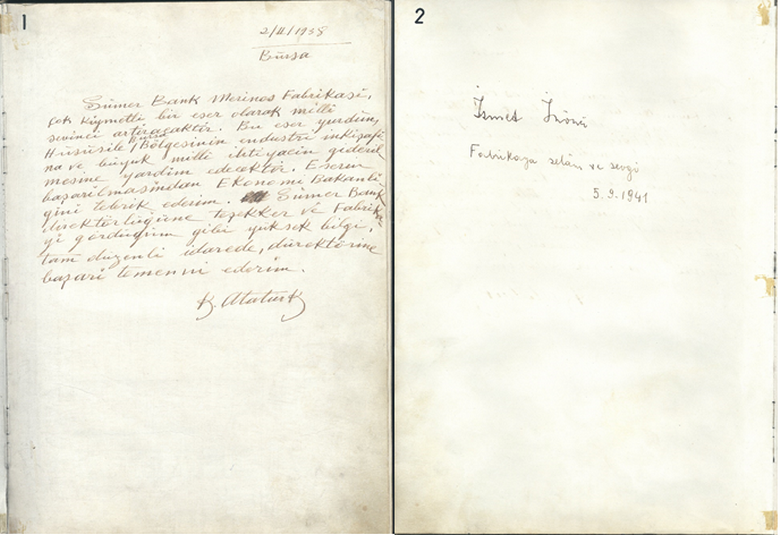 1
2/II/1938
Bursa
Sümer Bank Merinos Fabrikası,
çok kıymetli bir eser olarak millî
sevinci artıracaktır. Bu eser yurdun,
Hususile Bursa Bölgesinin endüstri inkişafı
na ve büyük millî ihtiyacın gideril
mesine yardım edecektir. Eserin
başarılmasından Ekonomi Bakanlı
ğını tebrik ederim. Sümer Bank
direktörlüğüne teşekkür ve Fabrika
yi gördüğüm gibi yüksek bilgi,
tam düzenli idarede, direktörüne
başarı temenni ederim.
K. Atatürk
2
İsmet İnönü
Fabrikaya selâm ve sevgi
5.9.1941